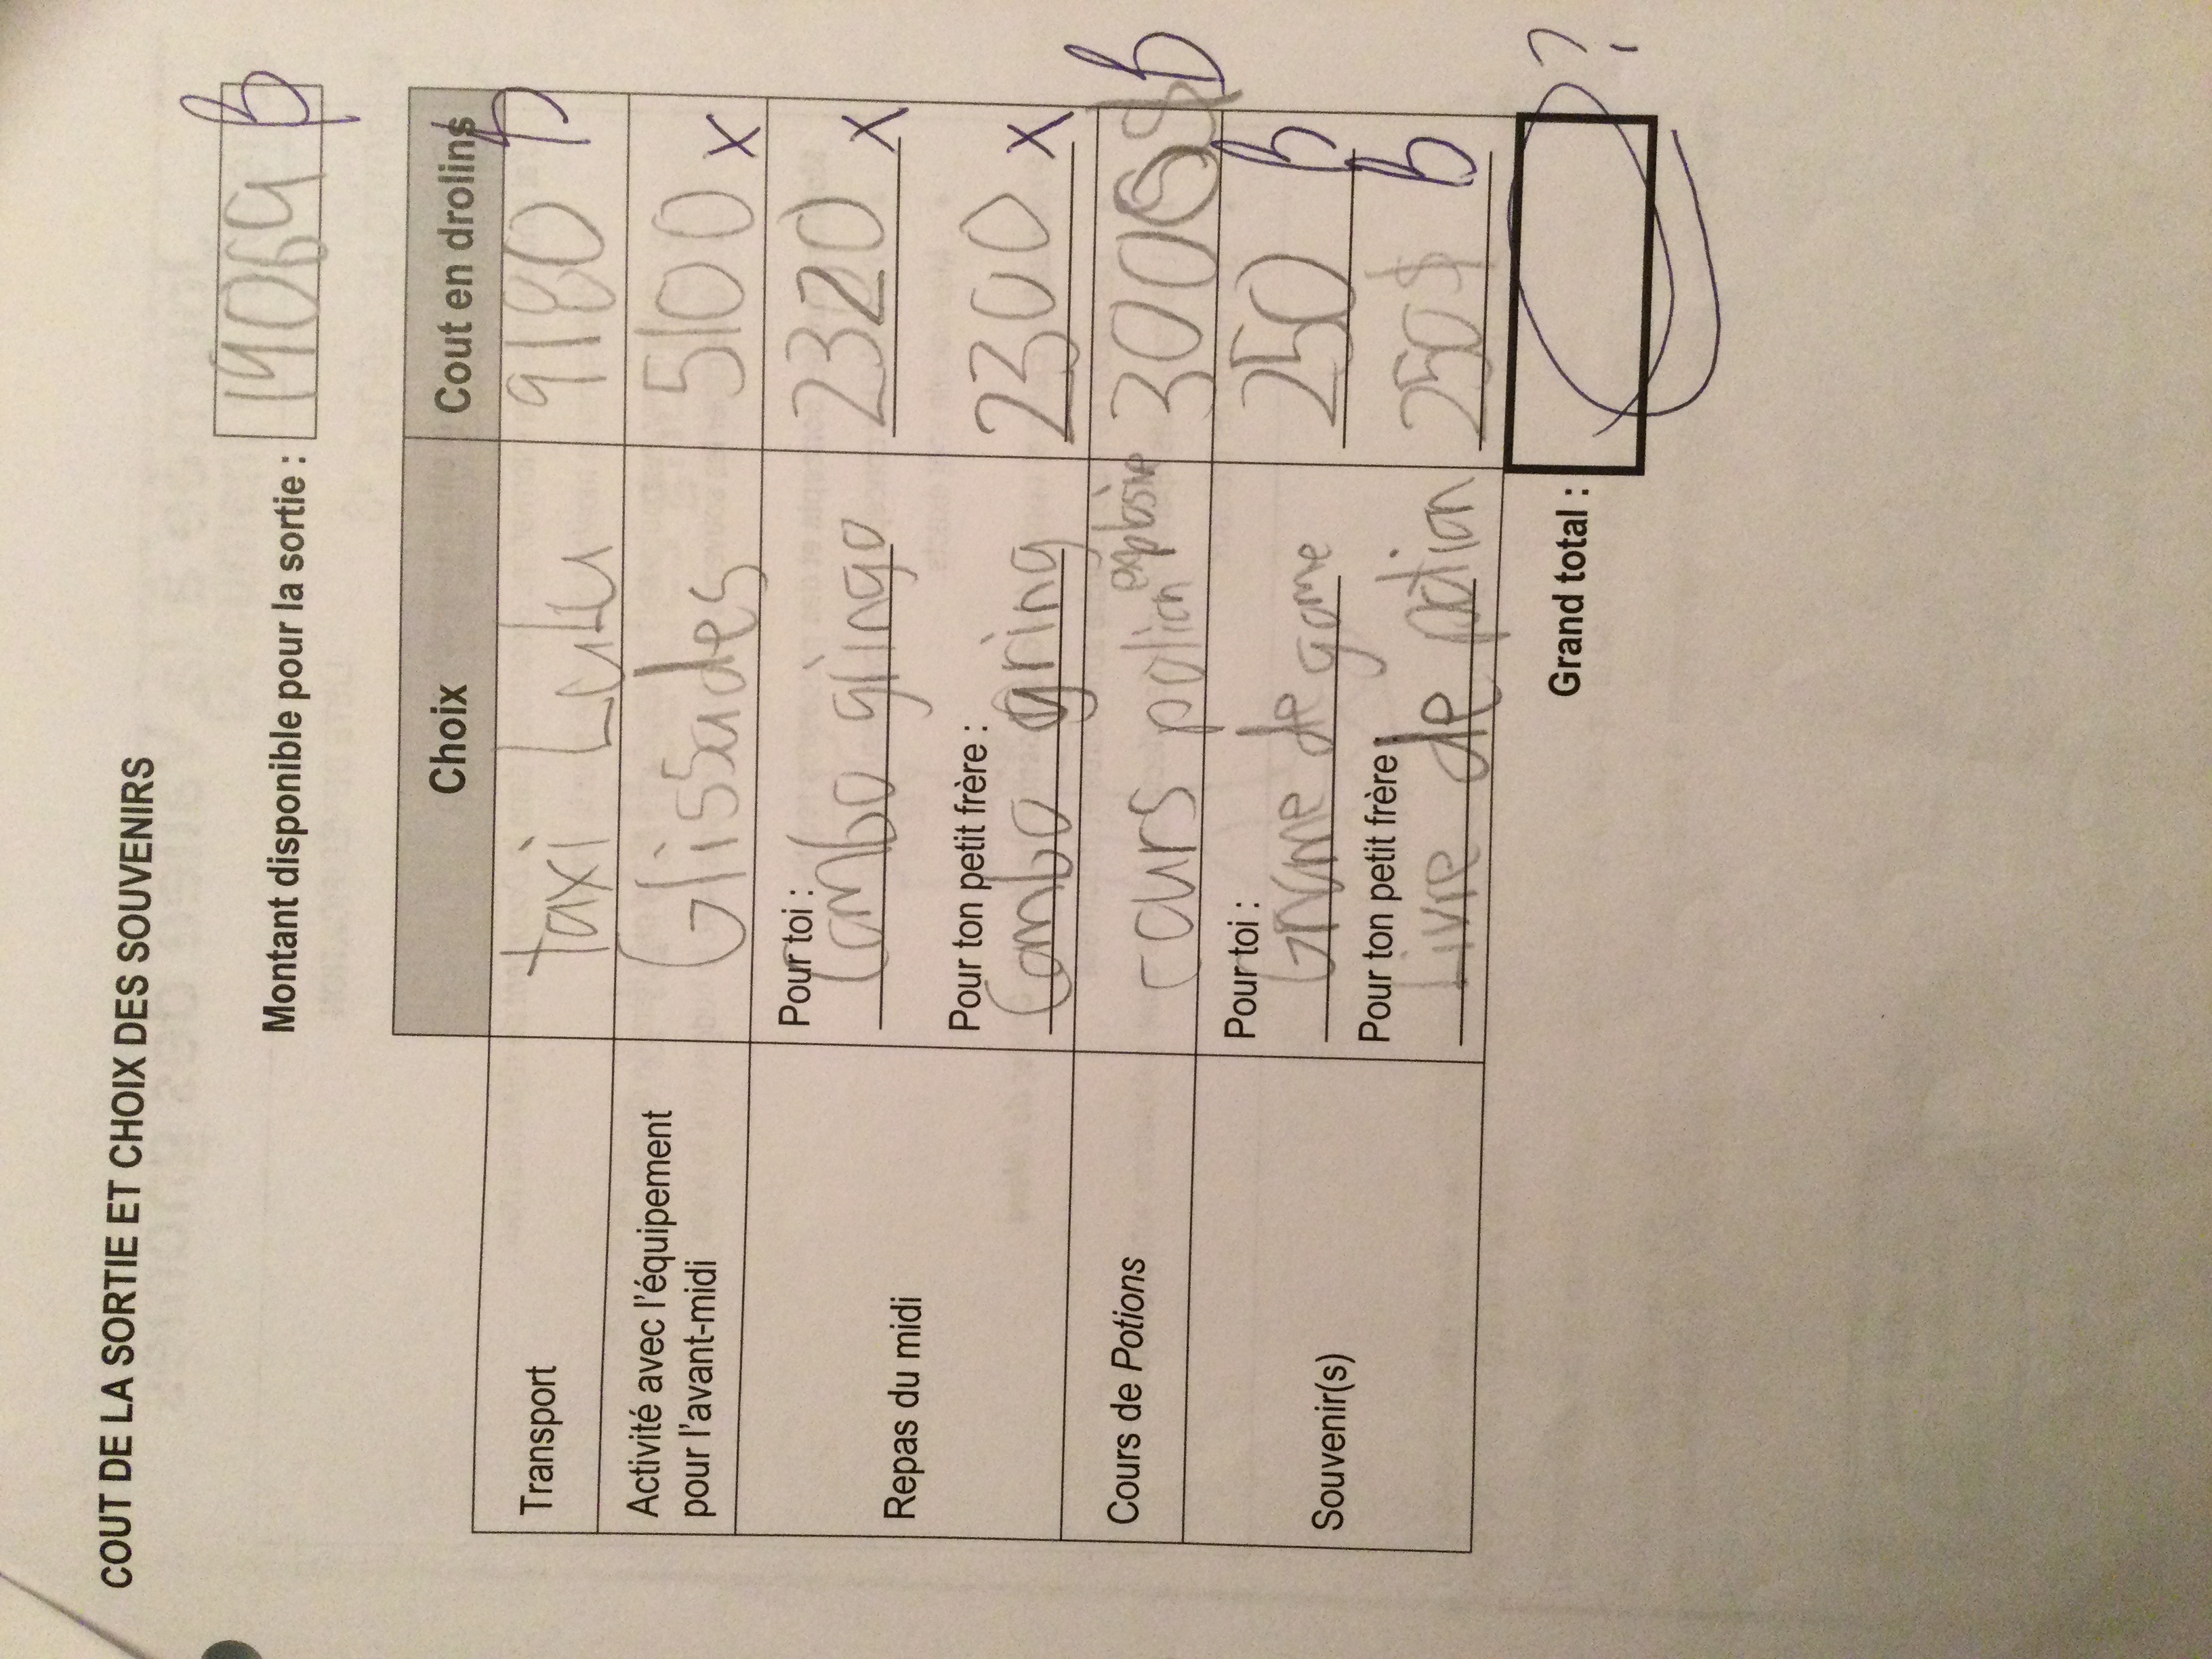 COUT DE LA SORTIE ET CHOIX DES SOUVENIRS
Montant disponible pour la sortie : 19069
Choix Cout en drolins
Transport taxi Lulu 9180
Activité avec l'équipement pour l'avant-midi Glissades 5100 x
Repas du midi
Pour toi :
Combo glingo 2320 x
Pour ton petit frère :
Combo gring 2300 x
Cours de Potions cours potion explosive 3000$
Souvenir(s)
Pour toi :
Gnome de gome 250
Pour ton petit frère :
Livre de potion 250$
Grand total : ??